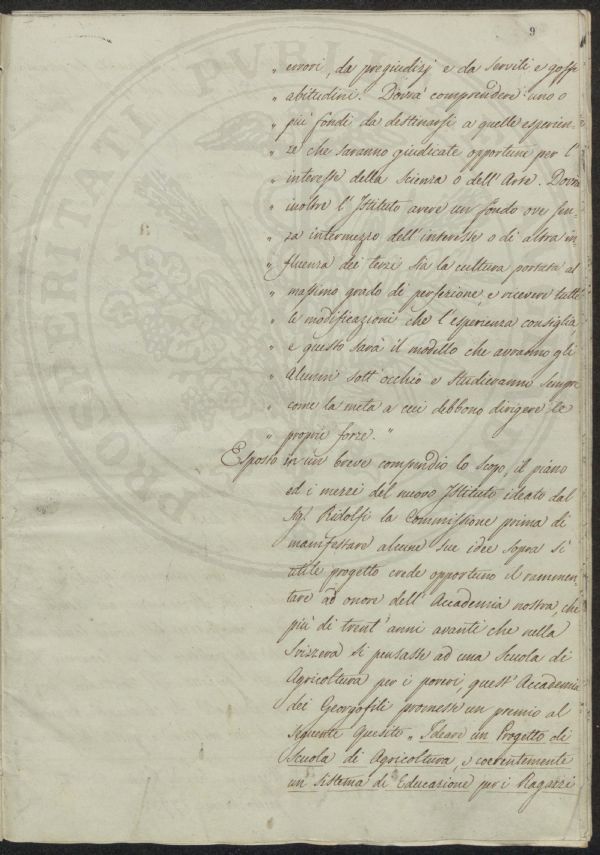 9
„ errori, da pregiudizj e da servili e goffe
„ abitudini. Dovrà comprendere uno o
„ più fondi da destinarsi a quelle esperien-
„ ze che saranno giudicate opportune per l'
„ interesse della Scienza o dell'Arte. Dovrà
„ inoltre l'Istituto avere un fondo ove sen-
„ za intermezzo dell'interesse o di altra in-
„ fluenza dei terzi sia la cultura portata al
„ massimo grado di perfezione, e ricevere tutte
„ le modificazioni che l'esperienza consiglia,
„ e questo sarà il modello che avranno gli
„ Alunni sott'occhio e studieranno sempre
„ come la meta a cui debbono dirigere le
„ proprie forze."
Esposto in un breve compendio lo scopo, il piano
ed i mezzi del nuovo Istituto ideato dal
Sig. Ridolfi la Commissione prima di
manifestare alcune sue idee sopra sì
utile progetto crede opportuno il rammen-
tare ad onore dell'Accademia nostra, che
più di trent'anni avanti che nella
Svizzera si pensasse ad una Scuola di
Agricoltura per i poveri, quest'Accademia
dei Georgofili promesse un premio al
seguente Quesito „ Ideare un Progetto di
Scuola di Agricoltura, e coerentemente
un Sistema di Educazione per i Ragazzi
PROSPERITATI PUBLI